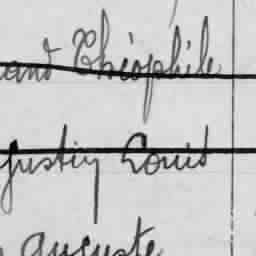 and Théophile
gustin Louis
auguste